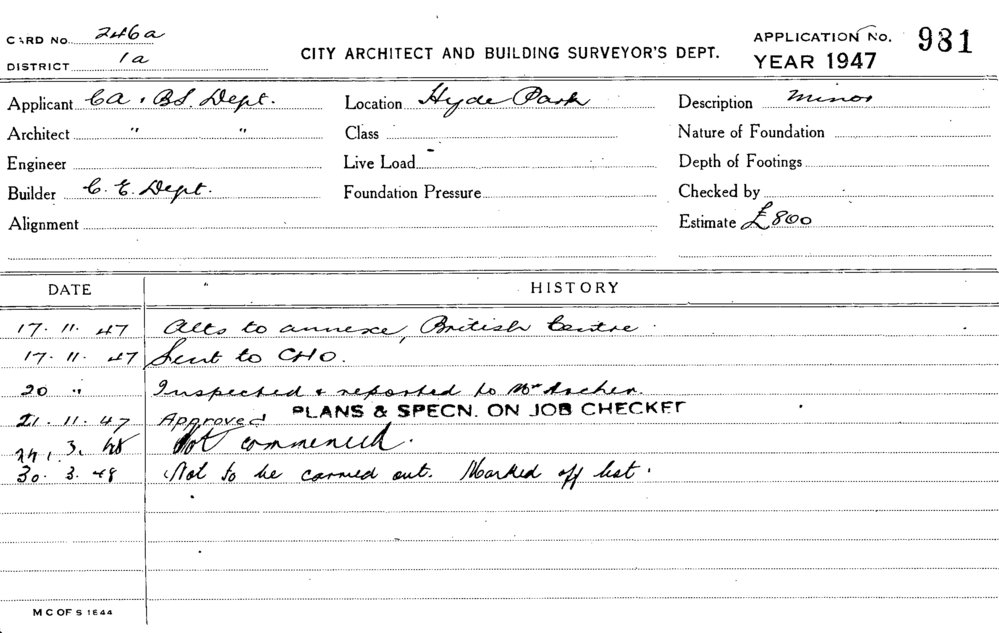 CARD No. 246a
DISTRICT 1a
CITY ARCHITECT AND BUILDING SURVEYOR'S DEPT.
APPLICATION No. 981
YEAR 1947
Applicant CA. BS. Dept. Location Hyde Park Description Minor
Architect " " Class Nature of Foundation
Engineer Live Load Depth of Footings
Builder C. E. Dept. Foundation Pressure Checked by
Alignment Estimate £800
DATE HISTORY
17. 11. 47 Alts to annexe, British Centre.
17. 11. 47 Sent to CHO.
20 " Inspected & reported to Mr Archer.
21. 11. 47 Approved PLANS & SPECN. ON JOB CHECKET
24. 3. 48 Not commenced.
30. 3. 48 Not to be carried out. Marked off list.
M C OF S 1644